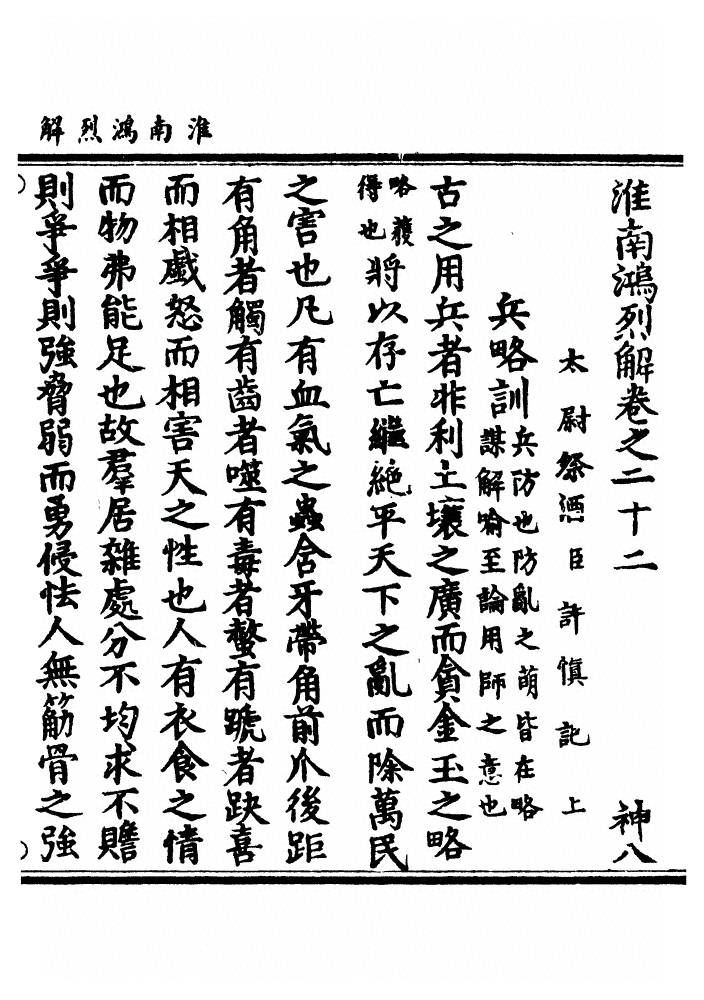 淮南鴻烈解
淮南鴻烈解卷之二十二　神八
太尉祭酒臣許慎記上
兵略訓兵防也防亂之萌皆在略
謀解喻至論用師之意也
古之用兵者非利土壤之廣而貪金玉之略
略獲
得也將以存亡繼絕平天下之亂而除萬民
之害也凡有血氣之蟲含牙帶角前爪後距
有角者觸有齒者噬有毒者螫有蹏者趹喜
而相戲怒而相害天之性也人有衣食之情
而物弗能足也故羣居雜處分不均求不贍
則爭爭則強脅弱而勇侵怯人無筋骨之強